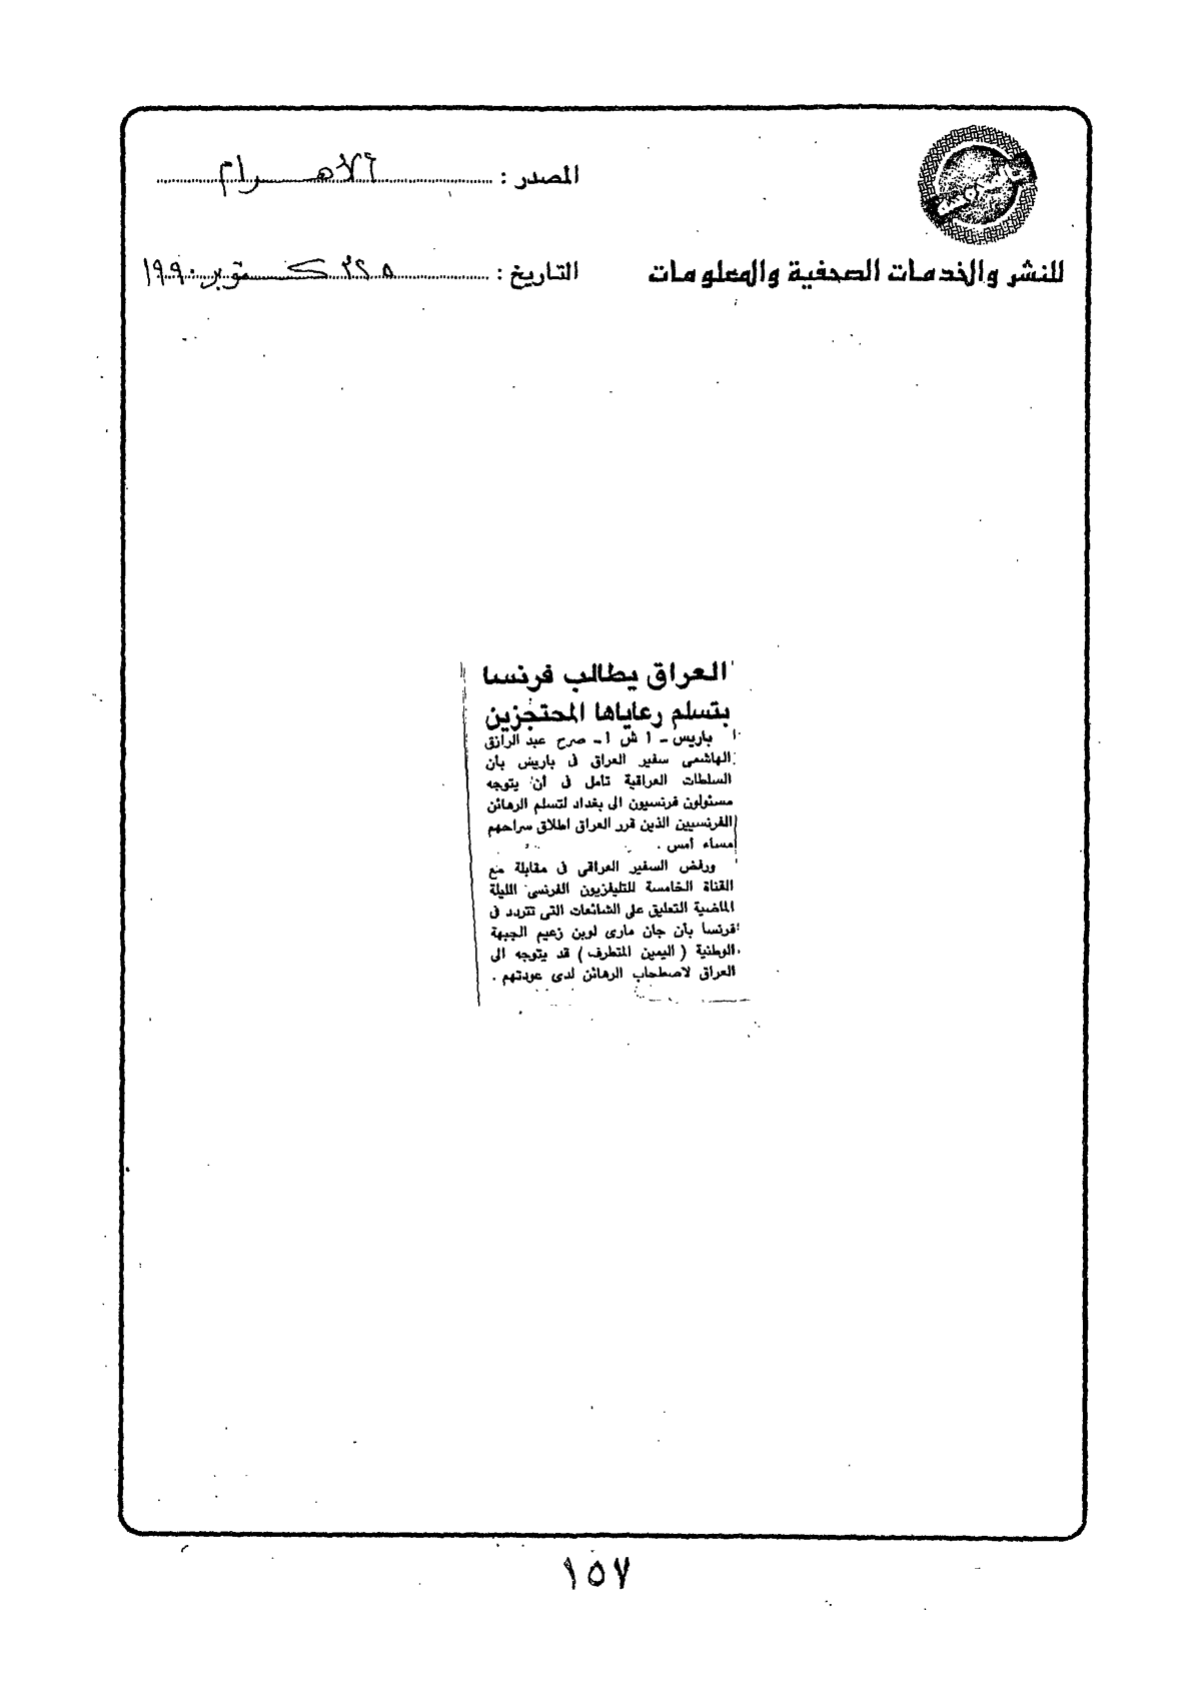 المصدر : الأهرام
للنشر والخدمات الصحفية والمعلومات
التاريخ : أكتوبر ١٩٩٠
العراق يطالب فرنسا
بتسلم رعاياها المحتجزين
باريس ـ ا ش ا ـ صرح عبد الرازق
الهاشمى سفير العراق فى باريس بأن
السلطات العراقية تأمل فى أن يتوجه
مسئولون فرنسيون الى بغداد لتسلم الرهائن
الفرنسيين الذين قرر العراق اطلاق سراحهم
مساء أمس .
ورفض السفير العراقى فى مقابلة مع
القناة الخامسة للتليفزيون الفرنسى الليلة
الماضية التعليق على الشائعات التى تتردد فى
فرنسا بأن جان مارى لوبن زعيم الجبهة
الوطنية ( اليمين المتطرف ) قد يتوجه الى
العراق لاصطحاب الرهائن لدى عودتهم .
١٥٧